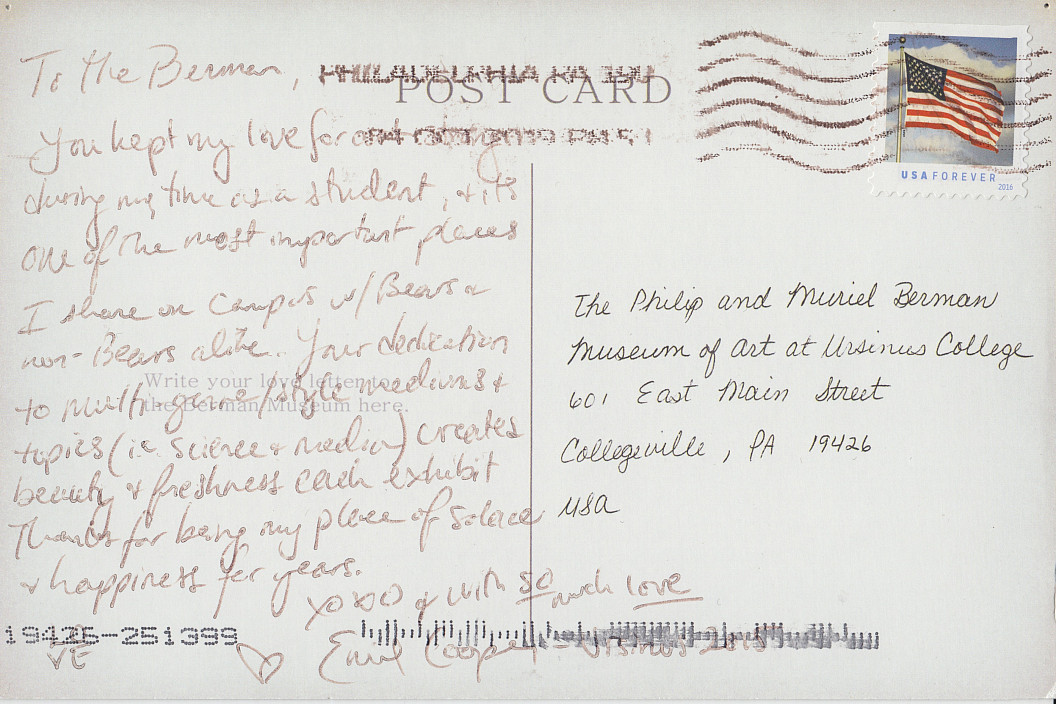 To the Berman,
PHILADELPHIA PA 190
POST CARD
You kept my love for art
04 OCT 2019 PM 5 L
during my time as a student, & it's
one of the most important places
I share on campus w/ Bears &
non-Bears alike. Your dedication
Write your love letter to
to multi genre/style mediums &
the Berman Museum here.
topics (i.e. science & media) creates
beauty & freshness each exhibit
Thanks for being my place of solace
& happiness for years.
xoxo & with so much love
Cooper - Ursinus
19426-251399
USA FOREVER
2016
The Philip and Muriel Berman
Museum of Art at Ursinus College
601 East Main Street
Collegeville, PA 19426
USA